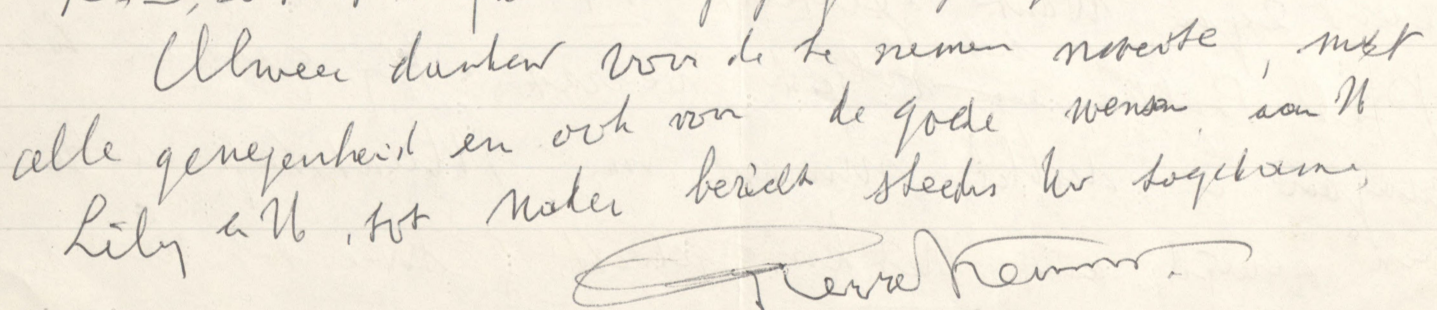 Alweer dankend voor de te nemen moeite, met
alle genegenheid en ook voor de goede wensen aan U
Lily en U, tot nader bericht steeds Uw toegedane,
Pierre Kemp.